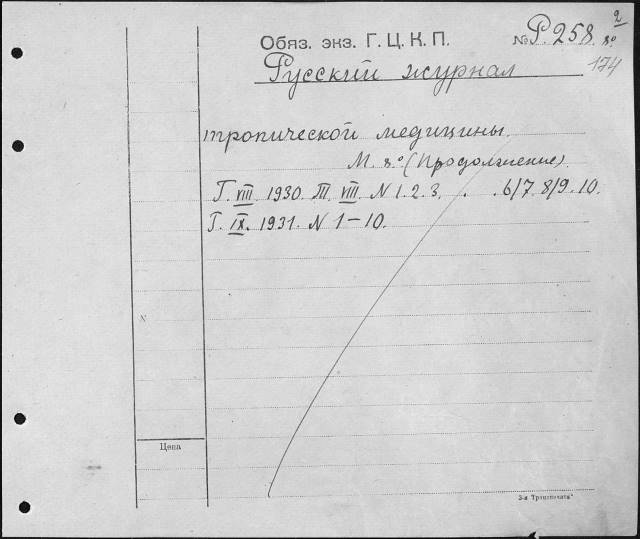 2
Обяз. экз. Г. Ц. К. П. № Р. 258. 8º
174
Русский журнал
тропической медицины.
М. 8º (Продолжение).
Г. VIII. 1930. Т. VIII. N 1. 2. 3. . . 6/7. 8/9. 10.
Г. IX. 1931. N 1-10.
N
Цена